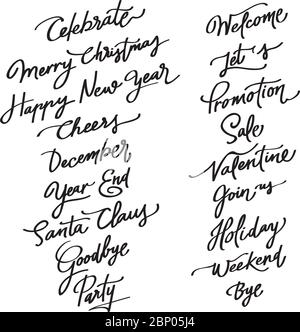 Celebrate
Merry Christmas
Happy New Year
Cheers
December
Year End
Santa Claus
Goodbye
Party
Welcome
Let's
Promotion
Sale
Valentine
Join us
Holiday
Weekend
Bye
alamy
Image ID: 2BP05J4
www.alamy.com